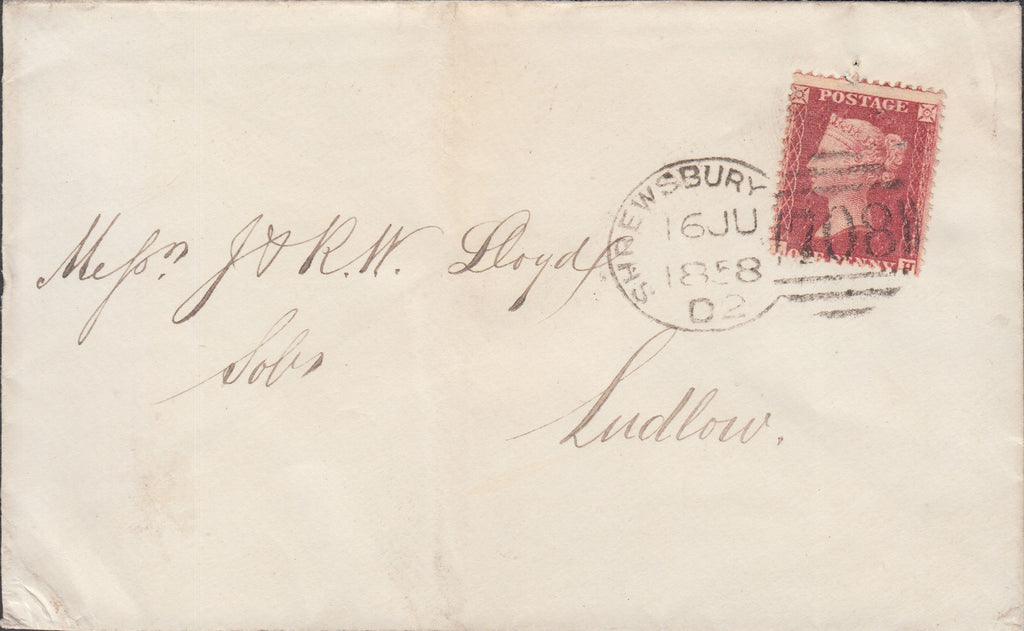 POSTAGE
SHREWSBURY
16 JU
1858
D2
708
Messrs J & R. W. Lloyd
Solrs
Ludlow.